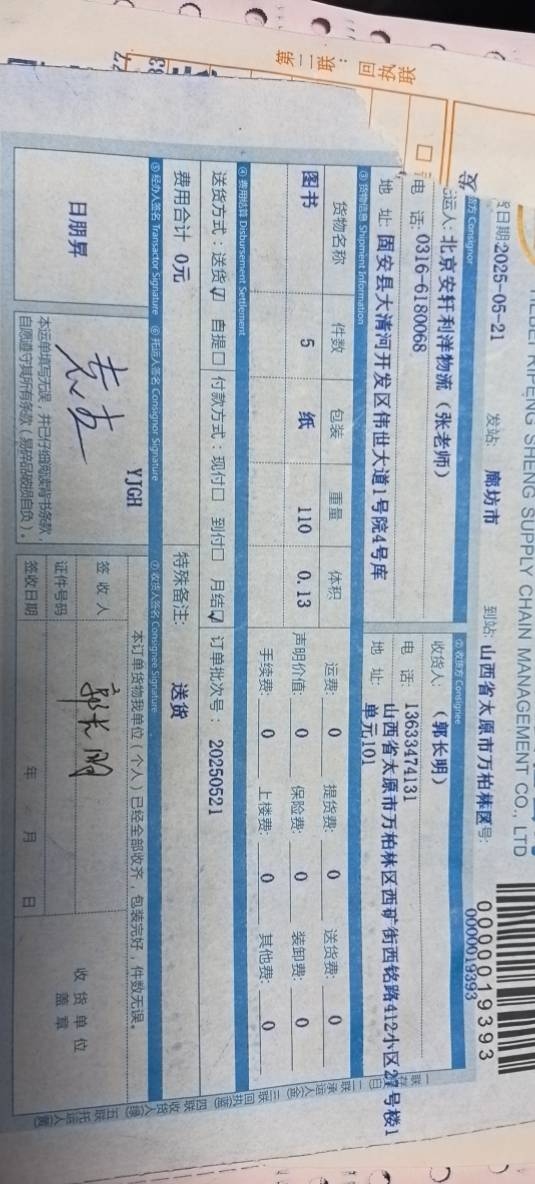 联执回：联二第
RIPENG SHENG SUPPLY CHAIN MANAGEMENT CO., LTD
0000019393
0000019393
日期:2025-05-21 发站: 廊坊市 到站: 山西省太原市万柏林区 号:
方 Consignor
②收货方 Consignee
运人: 北京安轩利洋物流（张老师）
收货人: （郭长明）
电 话: 0316-6180068
电 话: 13633474131
地 址: 固安县大清河开发区伟世大道1号院4号库
地 址: 山西省太原市万柏林区西矿街西铭路412小区2 号楼1
单元101
③ 货物信息 Shipment Information
货物名称 件数 包装 重量 体积
图书 5 纸 110 0.13
运费: 0 提货费: 0 送货费: 0
声明价值: 0 保险费: 0 装卸费: 0
手续费: 0 上楼费: 0 其他费: 0
④ 费用结算 Disbursement Settlement
送货方式：送货☑ 自提☐ 付款方式：现付☐ 到付☐ 月结☑ 订单批次号： 20250521
费用合计 0元 特殊备注: 送货
⑤ 经办人签名 Transactor Signature ⑥ 托运人签名 Consignor Signature ⑦ 收货人签名 Consignee Signature
日朋昇
YJGH
本运单填写无误，并已仔细阅读背书条款，
自愿遵守其所有条款（易碎品破损自负）。
本订单货物我单位（个人）已经全部收齐，包装完好，件数无误。
签 收 人 郭长明
证件号码
签收日期 年 月 日
收 货 单 位
盖 章